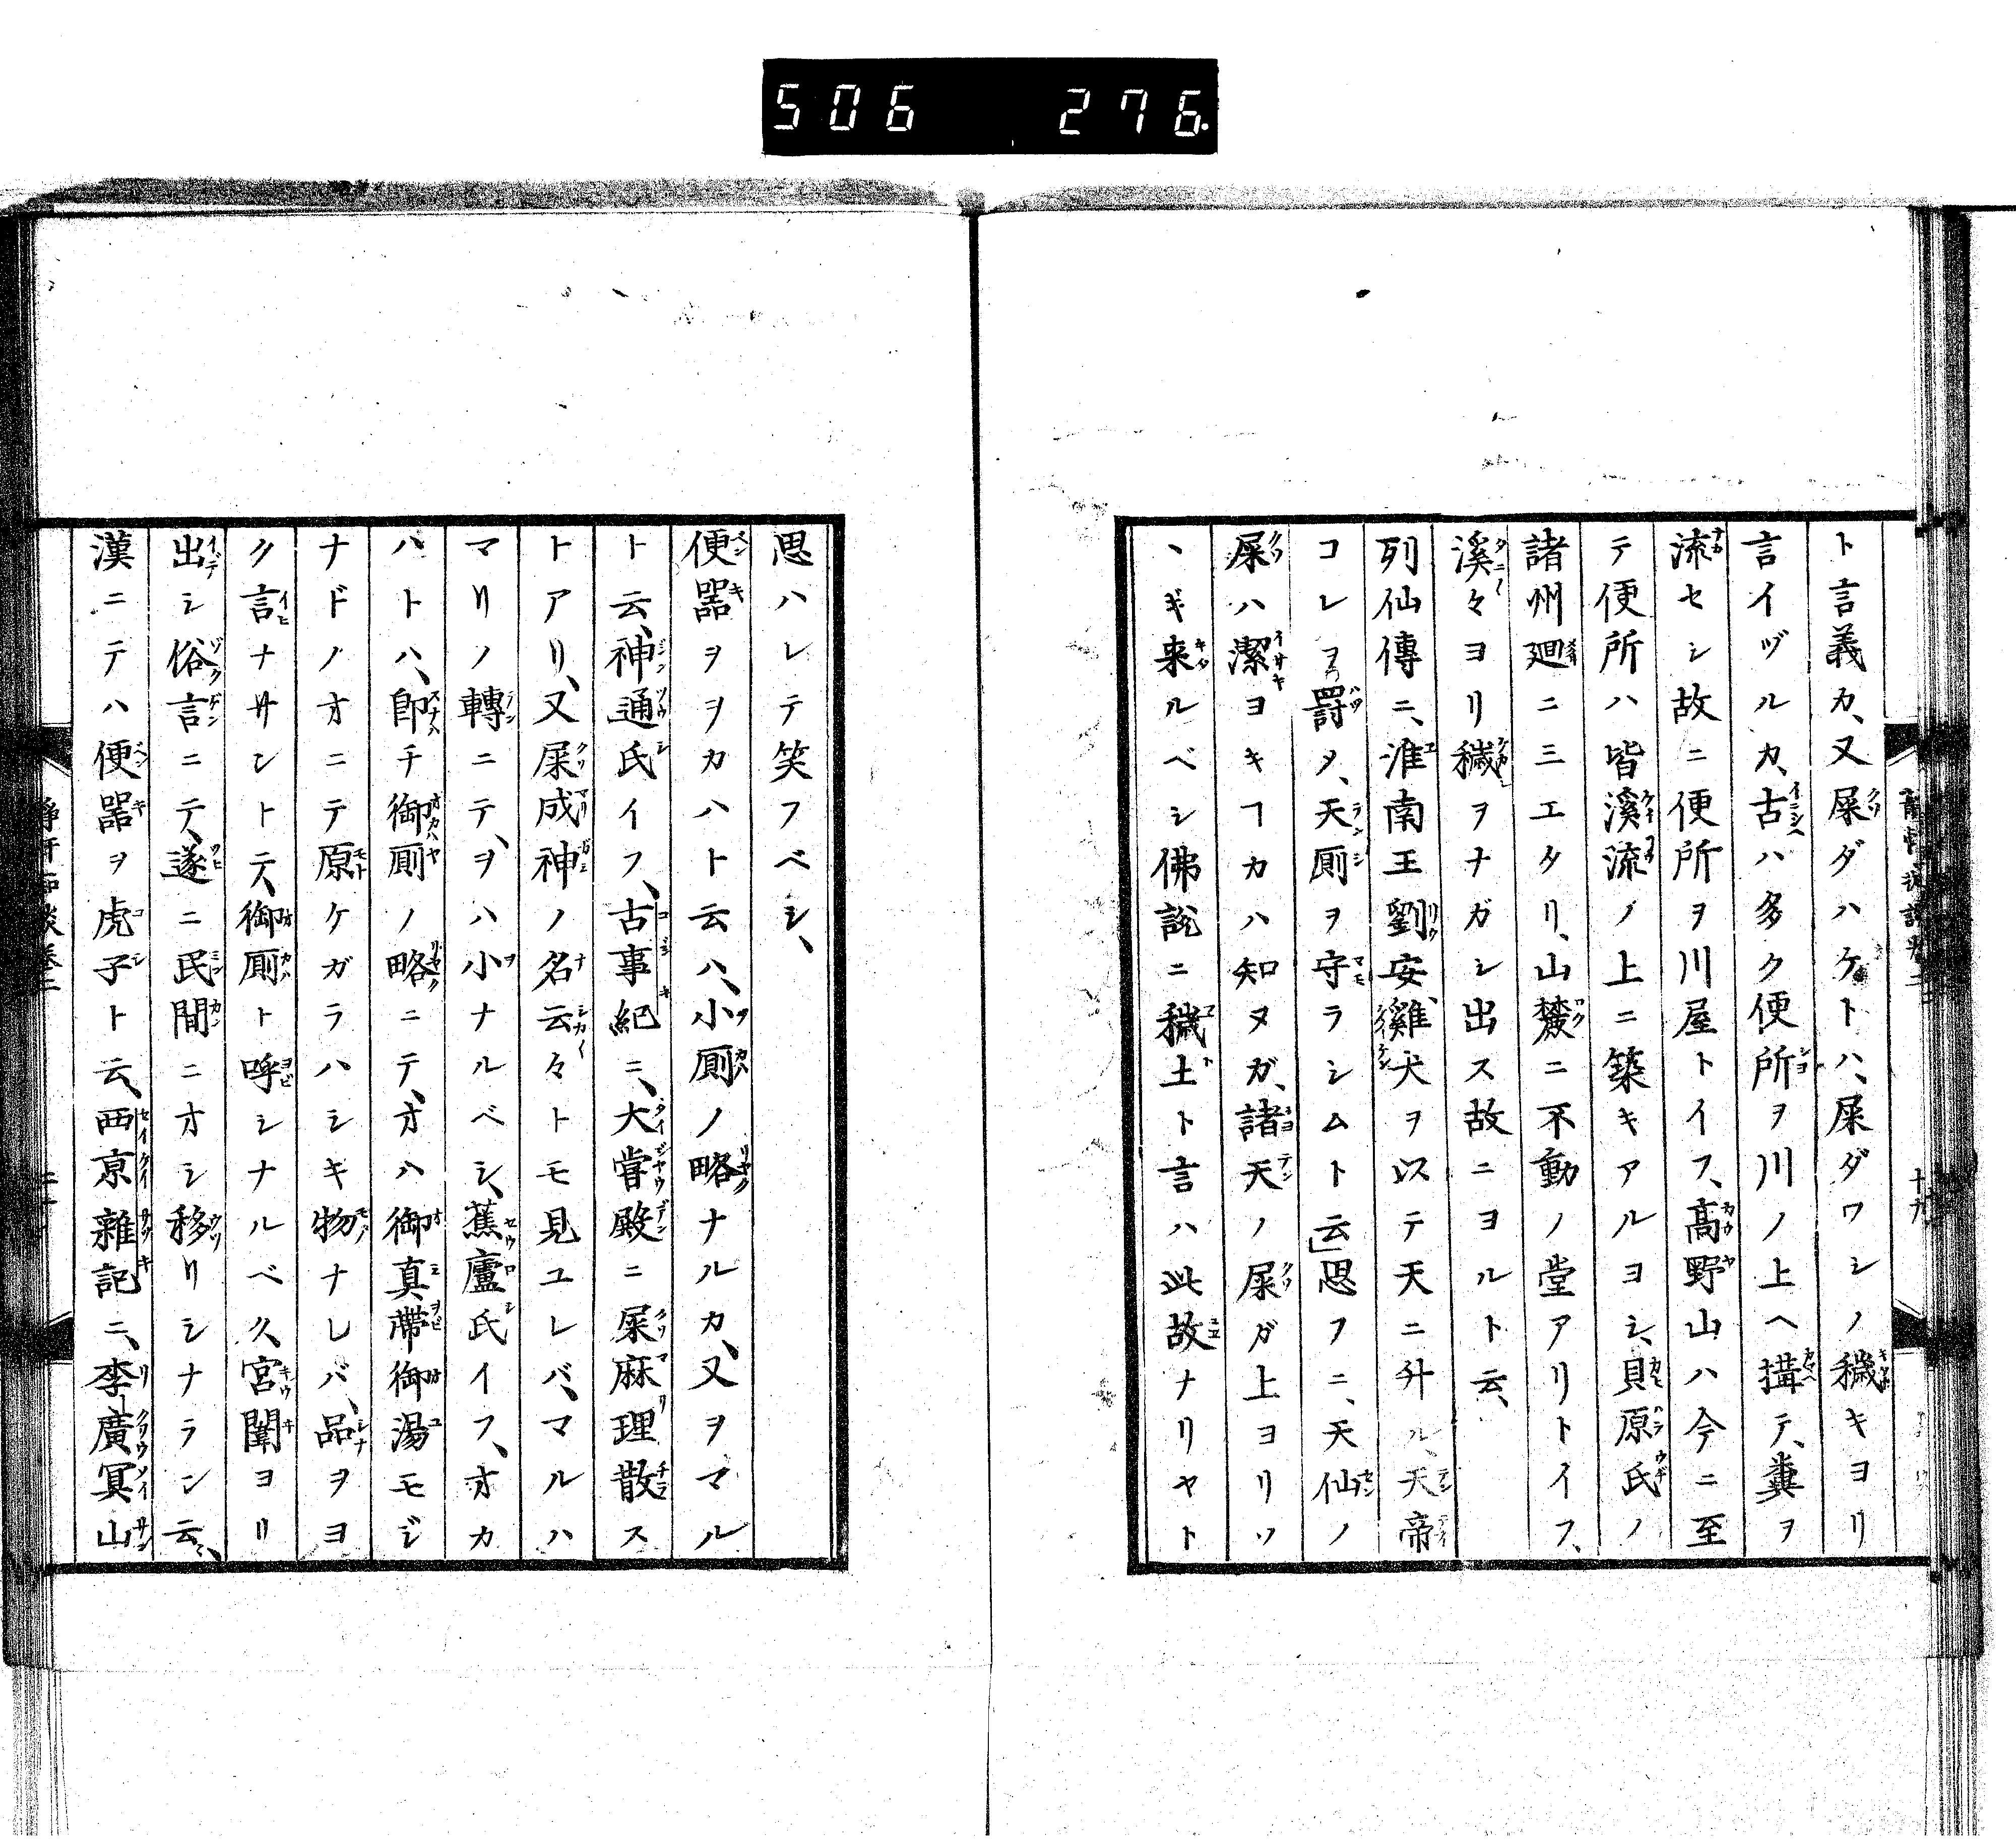 506 276.
ト言義カ、又屎ダハケトハ、屎ダワシノ穢キヨリ
言イヅルカ、古ハ多ク便所ヲ川ノ上ヘ搆テ、糞ヲ
流セシ故ニ便所ヲ川屋トイフ、髙野山ハ今ニ至
テ便所ハ皆溪流ノ上ニ築キアルヨシ、貝原氏ノ
諸州廻ニ三エタリ、山麓ニ不動ノ堂アリトイフ、
溪々ヨリ穢ヲナガシ出ス故ニヨルト云、
列仙傳ニ、淮南王劉安、雞犬ヲ以テ天ニ升ル、天帝
コレヲ罸メ、天厠ヲ守ラシムト云」思フニ、天仙ノ
屎ハ潔ヨキヿカハ知ヌガ、諸天ノ屎ガ上ヨリソ
ヽギ来ルベシ佛説ニ穢土ト言ハ此故ナリヤト
思ハレテ笑フベシ、
便器ヲヲカハト云ハ、小厠ノ略ナルカ、又ヲマル
ト云、神通氏イフ、古事紀ニ、大嘗殿ニ屎麻理散ス
トアリ、又屎成神ノ名云々トモ見ユレバ、マルハ
マリノ轉ニテ、ヲハ小ナルベシ、蕉盧氏イフ、オカ
ハトハ、卽チ御厠ノ略ニテ、オハ御真帶御湯モジ
ナドノオニテ原ケガラハシキ物ナレバ、品ヲヨ
ク言ナサントテ、御厠ト呼シナルベク、宮闈ヨリ
出シ俗言ニテ、遂ニ民間ニオシ移リシナラン云、
漢ニテハ便器ヲ虎子ト云、西亰雜記ニ、李廣冥山